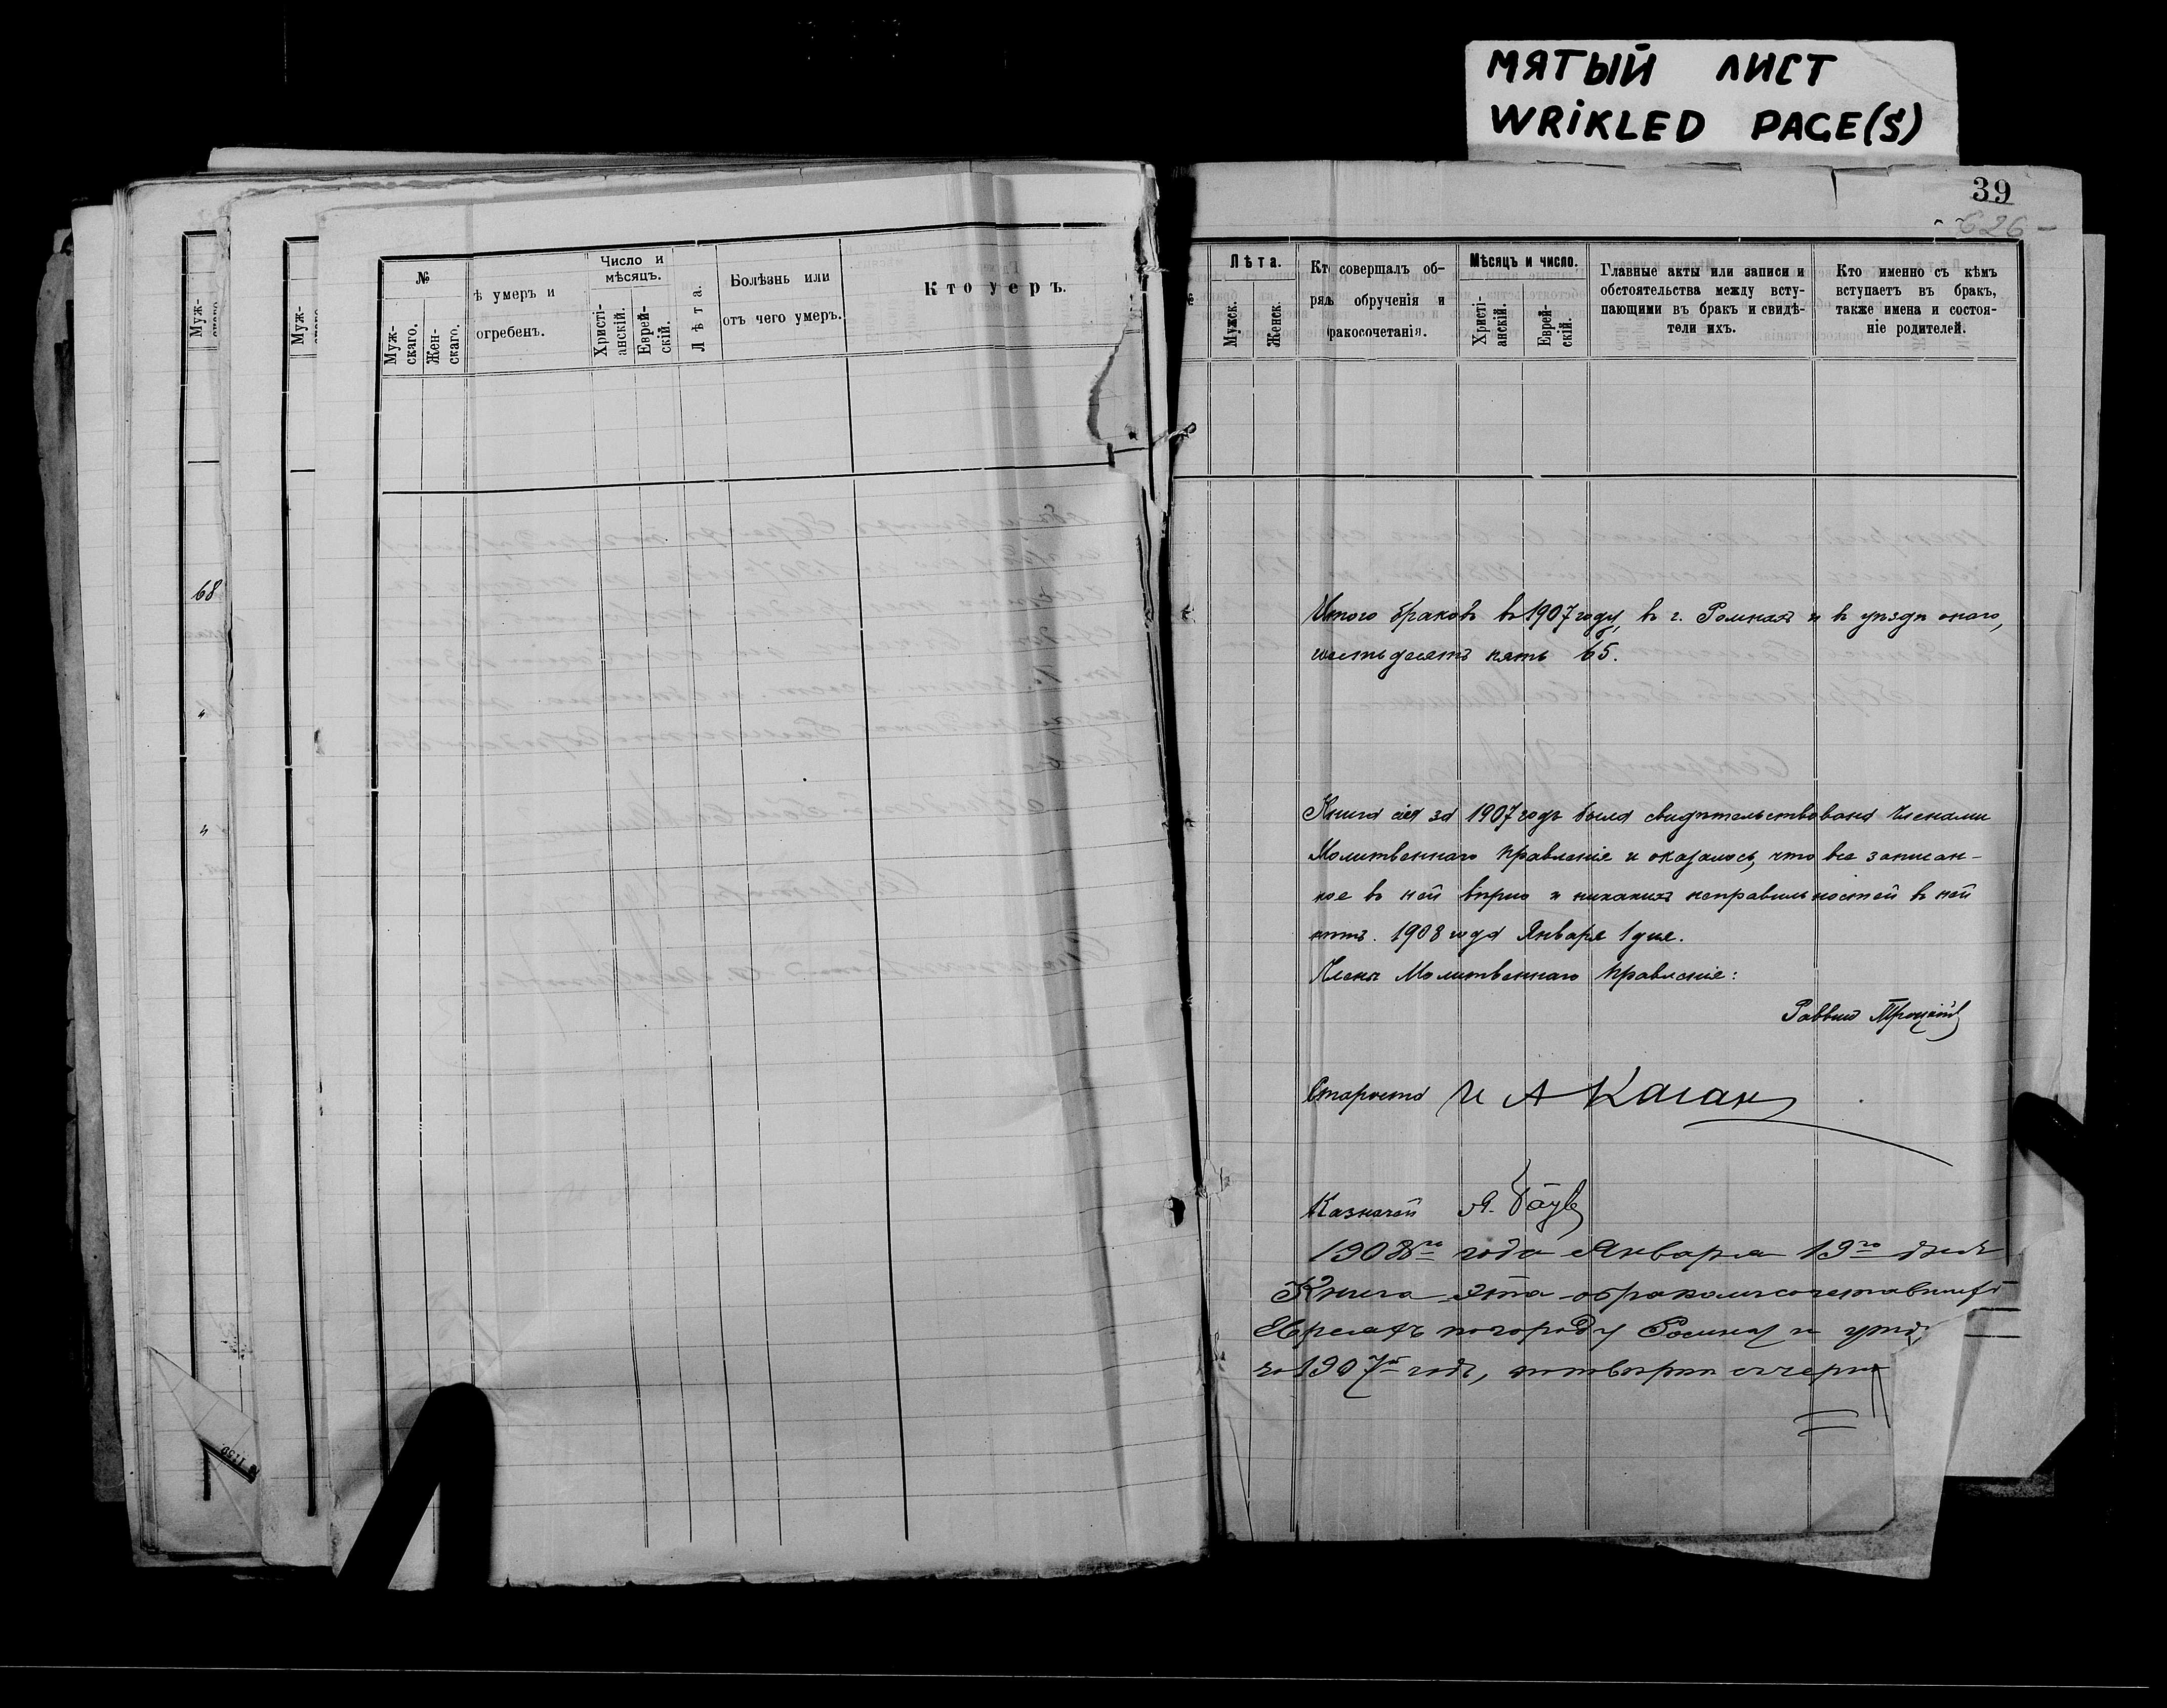 МЯТЫЙ ЛИСТ
WRiKLED PAGE(S)
39
626
Муж-
Муж-
68
№
Муж-
скаго.
Жен-
скаго.
ѣ умеръ и
огребенъ.
Число и
мѣсяцъ.
Христі-
анскій.
Еврей-
скій.
Лѣта.
Болѣзнь или
отъ чего умеръ.
Кто уеръ.
Лѣта.
Мужск.
Женск.
Кто совершалъ об-
рядъ обрученія и
ракосочетанія.
Мѣсяцъ и число.
Христі-
анскій.
Еврей-
скій.
Главные акты или записи и
обстоятельства между всту-
пающими въ бракъ и свидѣ-
тели ихъ.
Кто именно съ кѣмъ
вступаетъ въ бракъ,
также имена и состоя-
ніе родителей.
Итого браковъ въ 1907 году, въ г. Ромнахъ и въ уѣздѣ онаго,
шестьдесятъ пять 65.
Книга сія за 1907 годъ была свидѣтельствована членами
Молитвеннаго правленія и оказалось, что все записан-
ное въ ней вѣрно и никакихъ неправильностей въ ней
нѣтъ. 1908 года Января 1 дня.
Члены Молитвеннаго правленія:
Раввинъ Троцкій
Староста И А Каган
Казначей А.
1908го года Января 19го дня
Книга эта о бракосочетавшихся
Евреяхъ по городу Ромнах и уезд
за 1907й годъ,